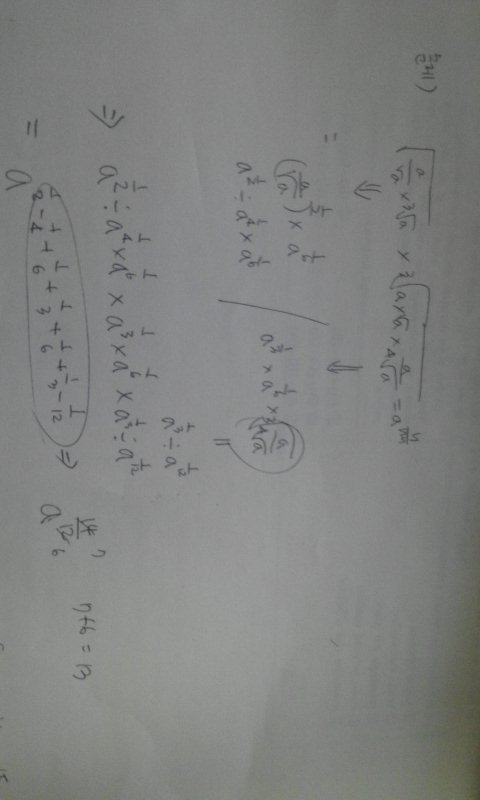 문제)
√(a/√a × ³√a) × ³√(a × √a × a/⁴√a) = a^(n/m)
⇓ ⇓
= (a/√a)^(1/2) × a^(1/6) / a^(1/3) × a^(1/6) × ³√(a/⁴√a)
a^(1/2) ÷ a^(1/4) × a^(1/6) = a^(1/3) ÷ a^(1/12)
⇒ a^(1/2) ÷ a^(1/4) × a^(1/6) × a^(1/3) × a^(1/6) × a^(1/3) ÷ a^(1/12)
= a^(1/2 - 1/4 + 1/6 + 1/3 + 1/6 + 1/3 - 1/12) ⇒ a^(14/12) 7 6 7+6 = 13